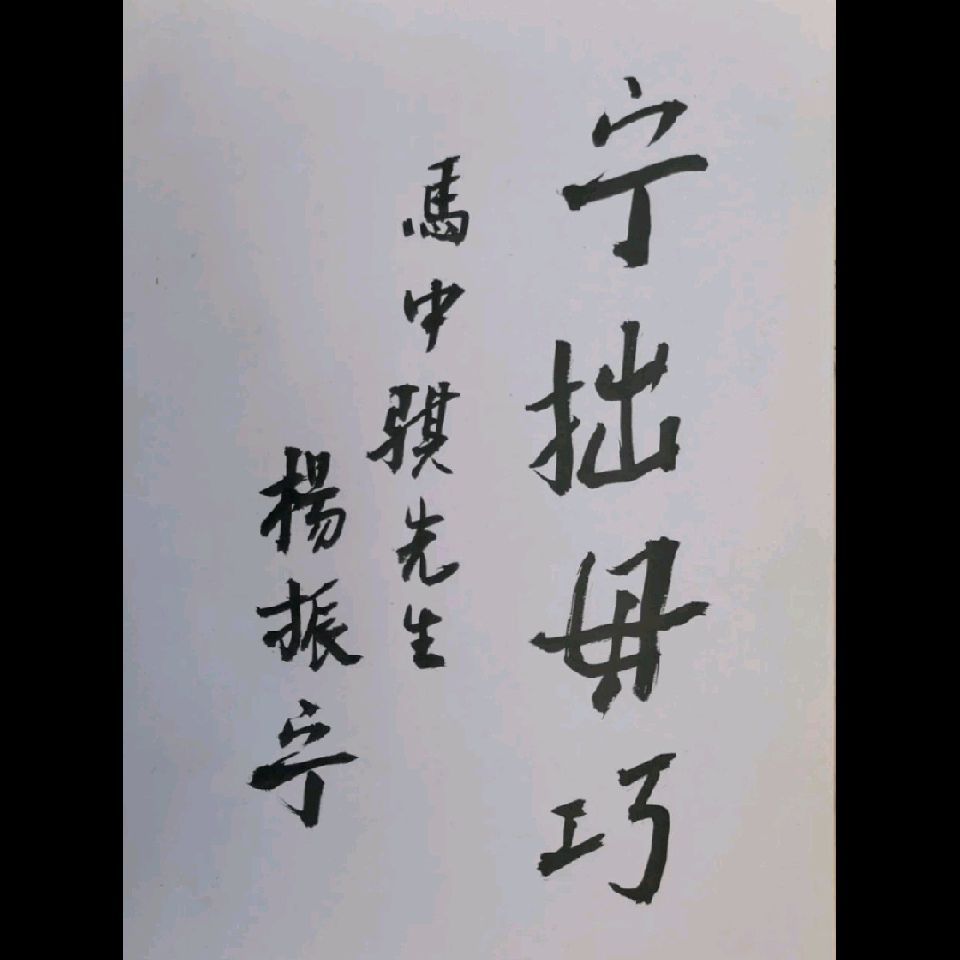 宁拙毋巧
馬中骐先生
楊振宁